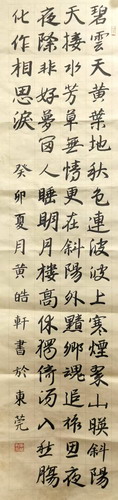 碧雲天黃葉地秋色連波波上寒煙翠山暎斜陽
天接水芳草無情更在斜陽外黯鄉魂追旅思夜
夜除非好夢留人睡明月樓高休獨倚酒入愁腸
化作相思淚 癸卯夏月黃皓軒書於東莞